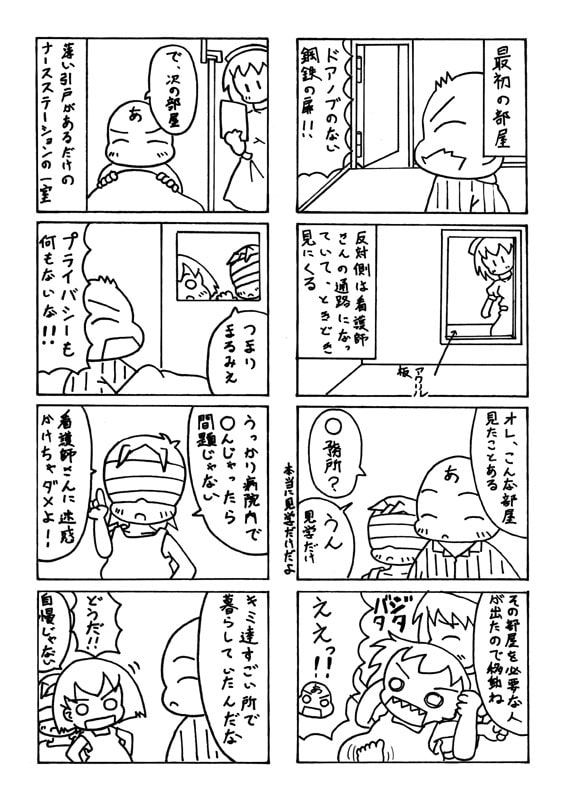 最初の部屋
ドアノブのない
鋼鉄の扉!!
反対側は看護師
さんの通路になっ
ていて、ときどき
見にくる
アクリル
板
オレ、こんな部屋
見たことある
あ
○務所?
うん
見学だけ
本当に見学だけだよ
その部屋を必要な人
が出たので移動ね
バタ
バタ
ええっ!!
あ
で、次の部屋
あ
薄い引戸があるだけの
ナースステーションの一室
つまり
まるみえ
プライバシーも
何もないな!!
うっかり病院内で
○んじゃったら
問題じゃない
看護師さんに迷惑
かけちゃダメよ!
キミ達すごい所で
暮らしていたんだな
どうだ!!
自慢じゃない